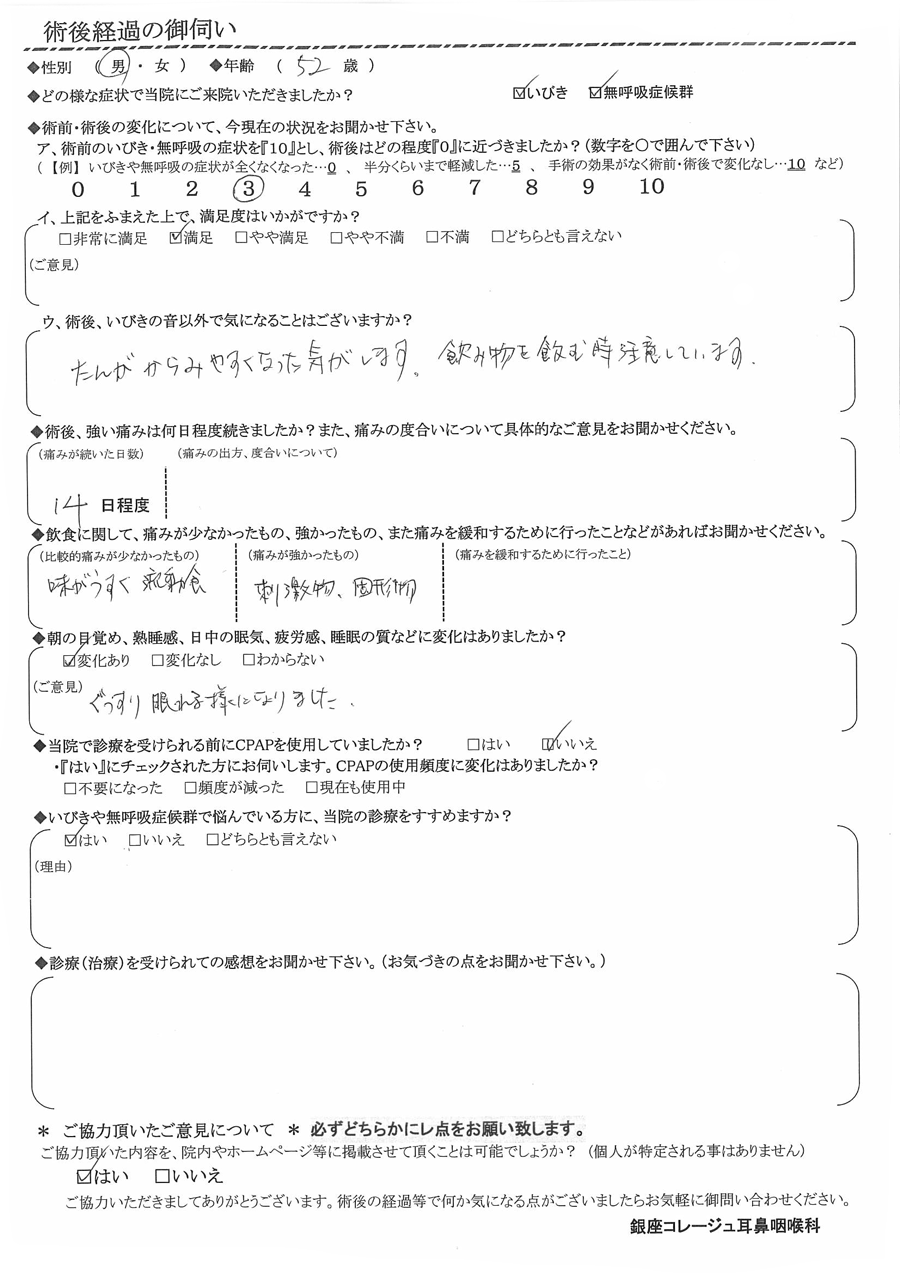 術後経過の御伺い
◆性別 (男・女) ◆年齢 (52歳)
◆どの様な症状で当院にご来院いただきましたか? ☑いびき ☑無呼吸症候群
◆術前・術後の変化について、今現在の状況をお聞かせ下さい。
ア、術前のいびき・無呼吸の症状を『10』とし、術後はどの程度『0』に近づきましたか?(数字を〇で囲んで下さい)
(【例】いびきや無呼吸の症状が全くなくなった…0 、 半分くらいまで軽減した…5 、 手術の効果がなく術前・術後で変化なし…10 など)
0 1 2 3 4 5 6 7 8 9 10
イ、上記をふまえた上で、満足度はいかがですか?
□非常に満足 ☑満足 □やや満足 □やや不満 □不満 □どちらとも言えない
(ご意見)
ウ、術後、いびきの音以外で気になることはございますか?
たんがからみやすくなった気がします。飲み物を飲む時注意しています.
◆術後、強い痛みは何日程度続きましたか?また、痛みの度合いについて具体的なご意見をお聞かせください。
(痛みが続いた日数) (痛みの出方、度合いについて)
14 日程度
◆飲食に関して、痛みが少なかったもの、強かったもの、また痛みを緩和するために行ったことなどがあればお聞かせください。
(比較的痛みが少なかったもの) (痛みが強かったもの) (痛みを緩和するために行ったこと)
味がうすく 流動食 刺激物、固形物
◆朝の目覚め、熟睡感、日中の眠気、疲労感、睡眠の質などに変化はありましたか?
☑変化あり □変化なし □わからない
(ご意見) ぐっすり眠れる様になりました.
◆当院で診療を受けられる前にCPAPを使用していましたか? □はい ☑いいえ
・『はい』にチェックされた方にお伺いします。CPAPの使用頻度に変化はありましたか?
□不要になった □頻度が減った □現在も使用中
◆いびきや無呼吸症候群で悩んでいる方に、当院の診療をすすめますか?
☑はい □いいえ □どちらとも言えない
(理由)
◆診療(治療)を受けられての感想をお聞かせ下さい。(お気づきの点をお聞かせ下さい。)
* ご協力頂いたご意見について * 必ずどちらかにレ点をお願い致します。
ご協力頂いた内容を、院内やホームページ等に掲載させて頂くことは可能でしょうか? (個人が特定される事はありません)
☑はい □いいえ
ご協力いただきましてありがとうございます。術後の経過等で何か気になる点がございましたらお気軽に御問い合わせください。
銀座コレージュ耳鼻咽喉科